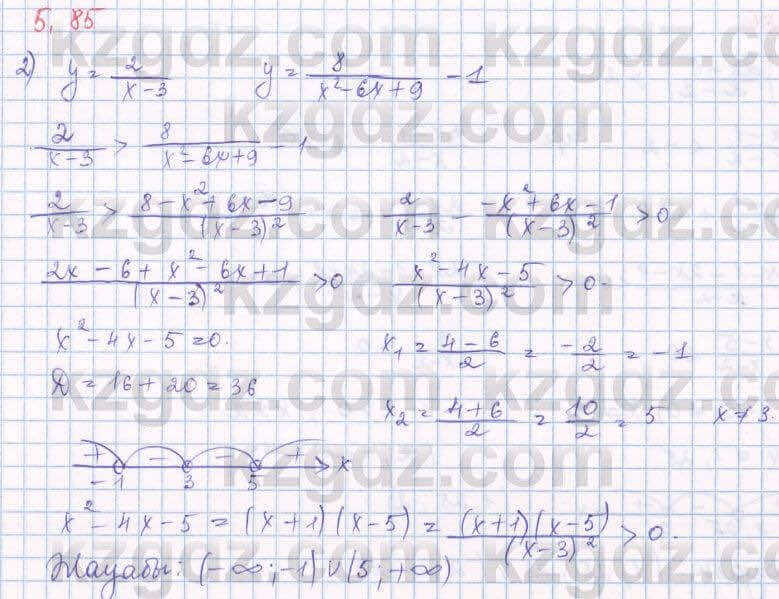 5.85
2) y = 2/(x-3)   y = 8/(x²-6x+9) - 1
2/(x-3) > 8/(x²-6x+9) - 1
2/(x-3) > (8-x²+6x-9)/(x-3)²   2/(x-3) - (-x²+6x-1)/(x-3)² > 0
(2x-6+x²-6x+1)/(x-3)² > 0   (x²-4x-5)/(x-3)² > 0.
x²-4x-5=0.   x₁ = (4-6)/2 = -2/2 = -1
D = 16+20 = 36
x₂ = (4+6)/2 = 10/2 = 5   x≠3.
+ - - + x
-1 3 5
x²-4x-5 = (x+1)(x-5) = (x+1)(x-5)/(x-3)² > 0.
Жауабы: (-∞;-1)∪(5;+∞)
kzgdz.com
kzgdz.com
kzgdz.com
kzgdz.com
kzgdz.com
kzgdz.com